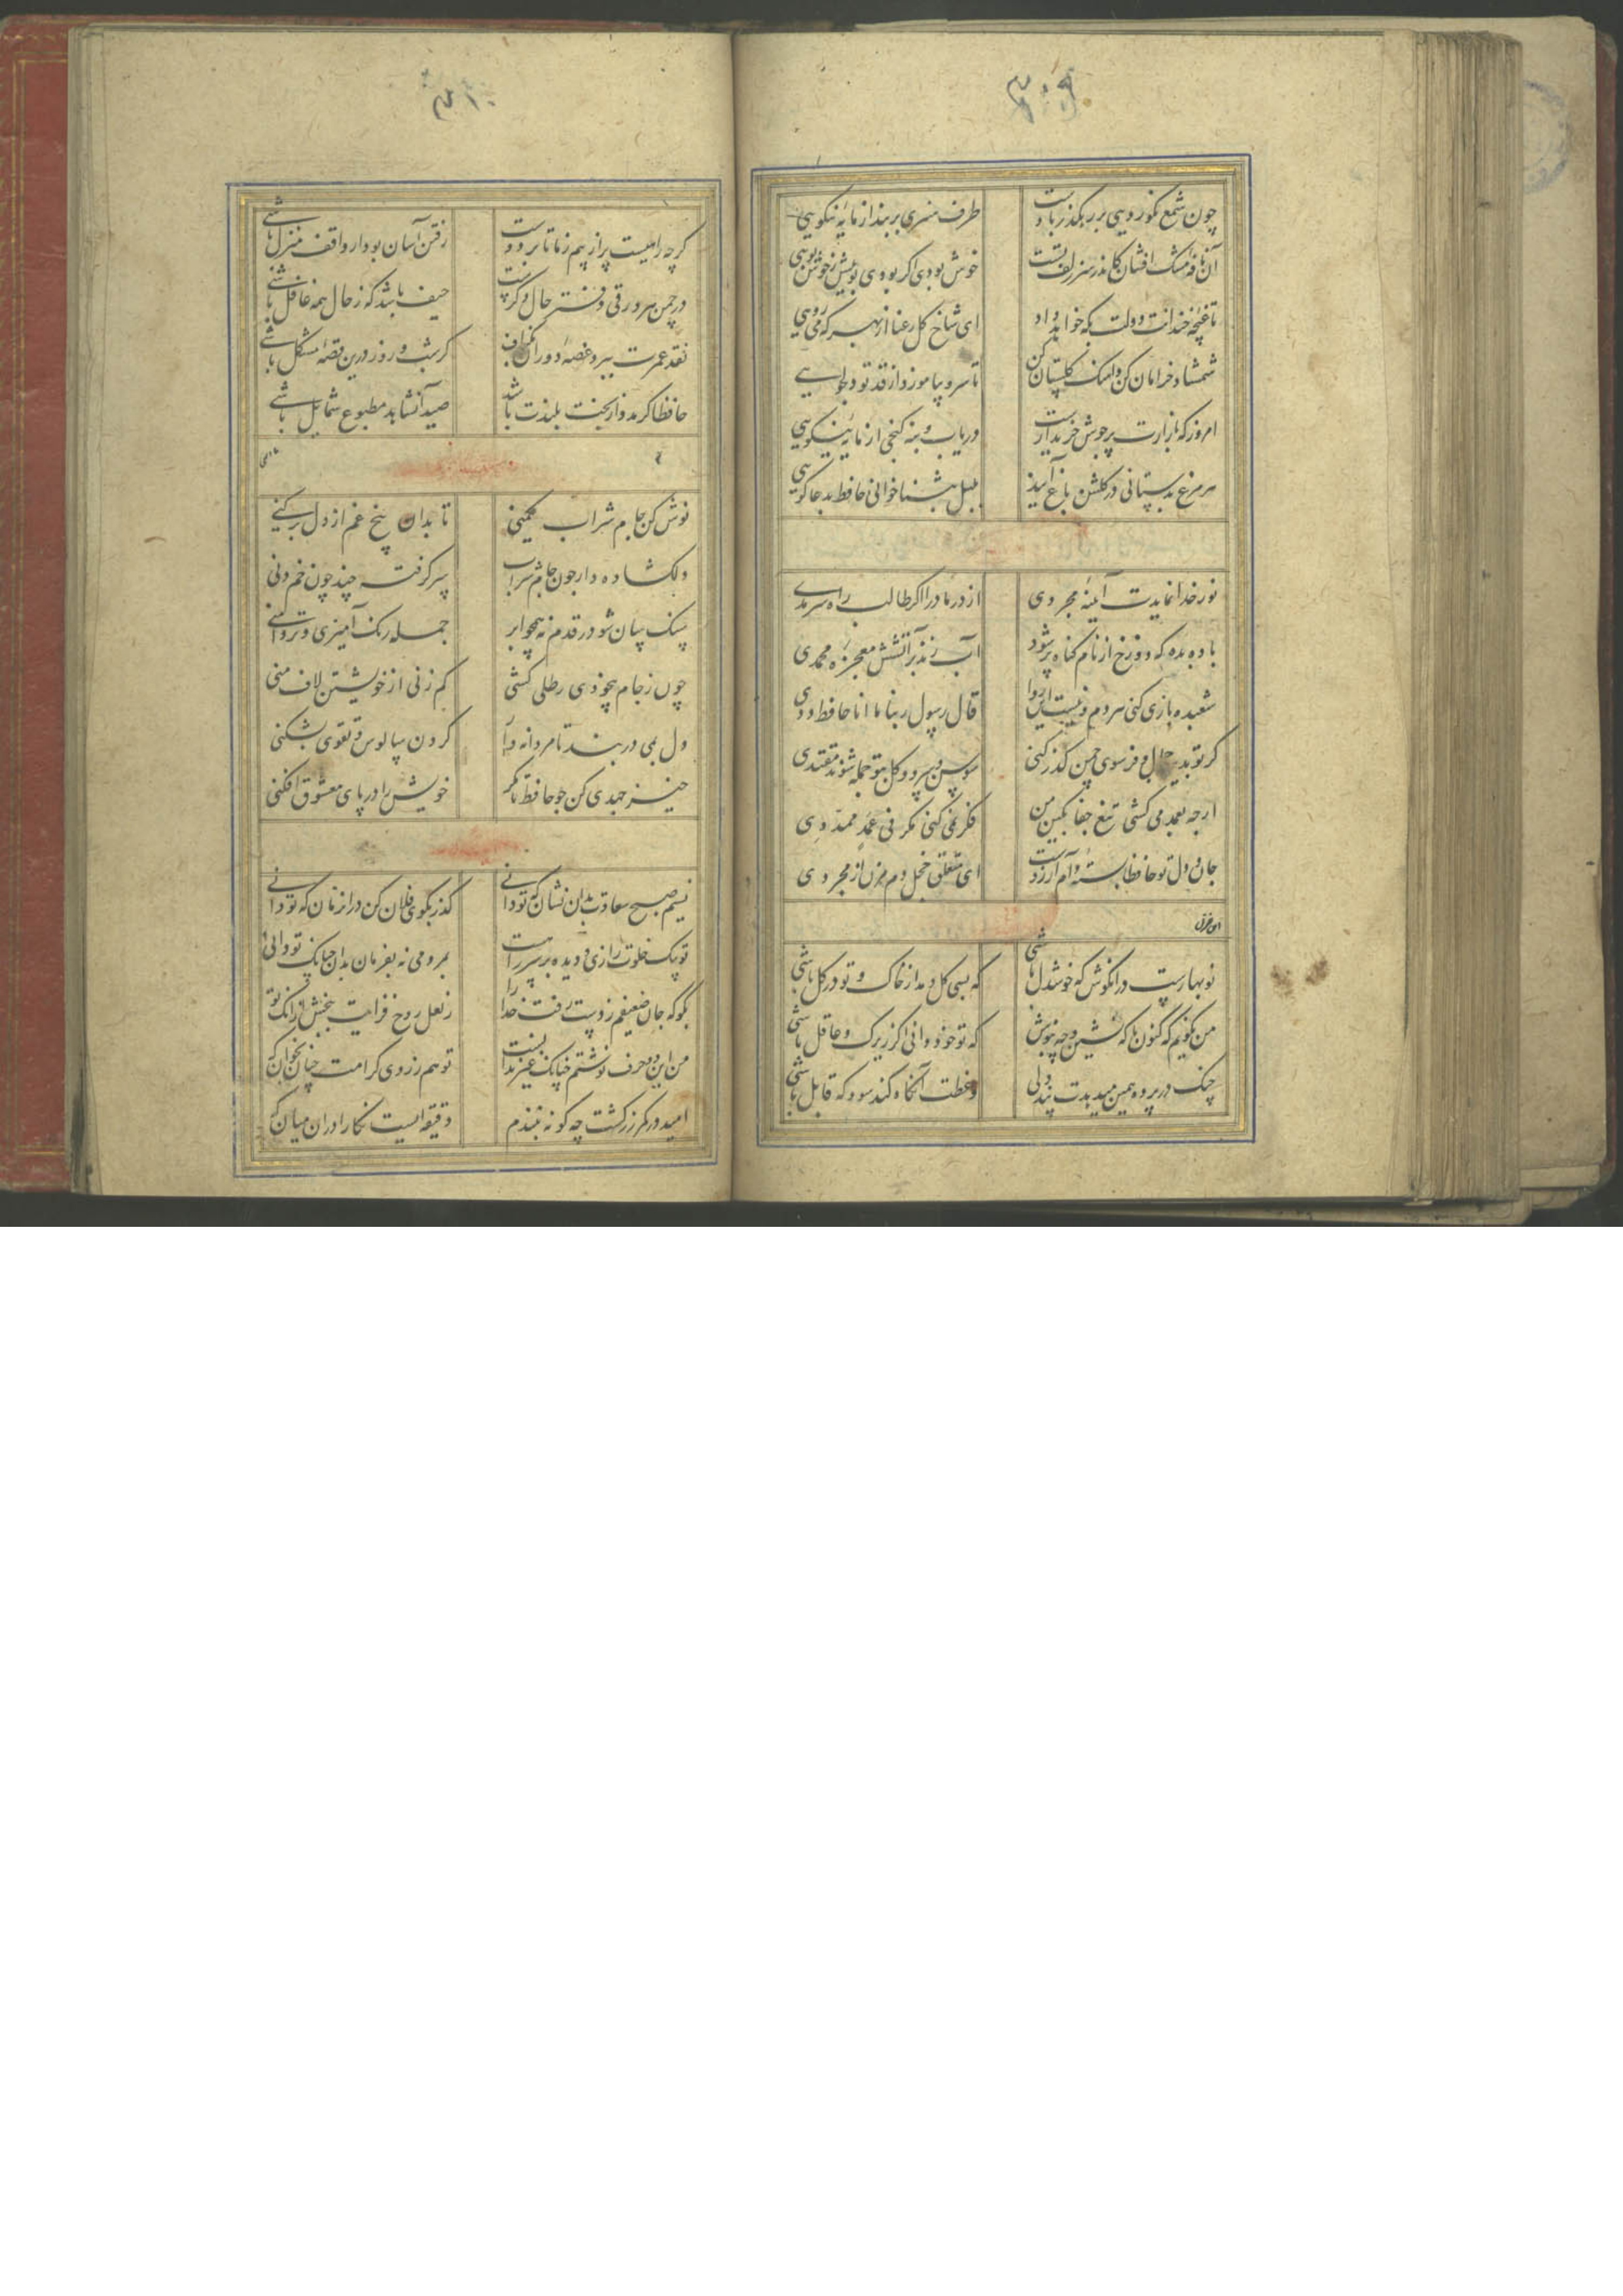 ۳۰۹
چون شمع نکوروییی بر رهگذر بادست طرف هنری بربند از مایه نیکویی
آن نافه مشک افشان کاندر سر زلف تست خوش بودی اگر بودی بوییش ز خوش خویی
تا غنچه خندانت دولت بکه خواهد داد ای شاخ کل رعنا از بهر که می رویی
شمشاد خرامان کن و آهنک کلستان کن تا سرو بیاموزد از قد تو دلجویی
امروز که بازارت پرجوش خریدارست دریاب و بنه کنجی از مایه نیکویی
هر مرغ بدستانی در کلشن و باغ آید بلبل بثناخوانی حافظ بدعاکویی
نور خدا نمایدت آینه مجردی از در ما درا اکر طالب راه سرمدی
باده بده که دوزخ از نام کناه پر شود آب زند بر آتشش معجزه محمدی
شعبده بازی کنی هر دم و نیست این روا قال رسول ربنا ما انا حافظ ددی
کر تو بدین جمال و فر سوی چمن کذر کنی سوسن و سرو و کل بتو جمله شوند مقتدی
ارچه بعمد می کشی تیغ جفا بکین من فکر نمی کنی مکر فی عمد ممددی
جان و دل تو حافظا بسته دام آرزوست ای متعلق خجل دم مزن از مجردی
نوبهارست در آن کوش که خوشدل باشی که بسی کل دمد از خاک و تو در کل باشی
من نکویم که کنون با که نشین و چه بنوش که تو خود دانی اکر زیرک و عاقل باشی
چنک در پرده همین میدهدت پند ولی وعظت آنکاه کند سود که قابل باشی
۳۱۰
کرچه راهیست پر از بیم ز ما تا بر دوست رفتن آسان بود ار واقف منزل باشی
در چمن هر ورقی دفتر حال دکرست حیف باشد که ز حال همه غافل باشی
نقد عمرت ببرد غصه دوران بکزاف کر شب و روز درین قصه مشکل باشی
حافظا کر مدد از بخت بلندت باشد صید آن شاهد مطبوع شمایل باشی
نوش کن جام شراب یکمنی تا بدان بیخ غم از دل برکنی
دل کشاده دار چون جام شراب سر کرفته چند چون خم دنی
سنک سان شو در قدم نه همچو ابر جمله رنک آمیزی و تردامنی
چون ز جام بیخودی رطلی کشی کم زنی از خویشتن لاف منی
دل بمی دربند تا مردانه وار کردن سالوس و تقوی بشکنی
خیز جهدی کن چو حافظ تا مکر خویش را در پای معشوق افکنی
نسیم صبح سعادت بدان نشان که تو دانی کذر بکوی فلان کن در آن زمان که تو دانی
تو پیک خلوت رازی و دیده بر سر راهست بمردمی نه بفرمان بدان چنانک تو دانی
بکو که جان ضعیفم ز دست رفت خدا را ز لعل روح فزایت ببخش از آنک تو
من این دو حرف نوشتم چنانک غیر ندانست تو هم ز روی کرامت چنان بخوان که
امید در کمر زرکشت چه کونه نبندم دقیقه ایست نکارا در آن میان که